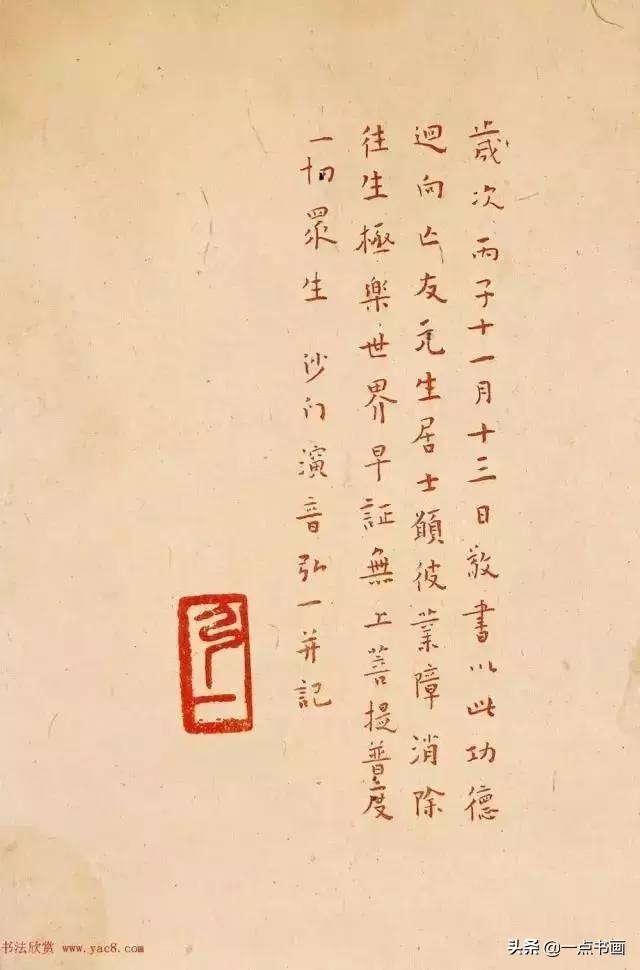 歲次丙子十一月十三日敬書以此功德
迴向亡友元生居士願彼業障消除
往生極樂世界早証無上菩提普度
一切眾生 沙门演音弘一并記
弘一
书法欣赏 www.yac8.com
头条 @一点书画